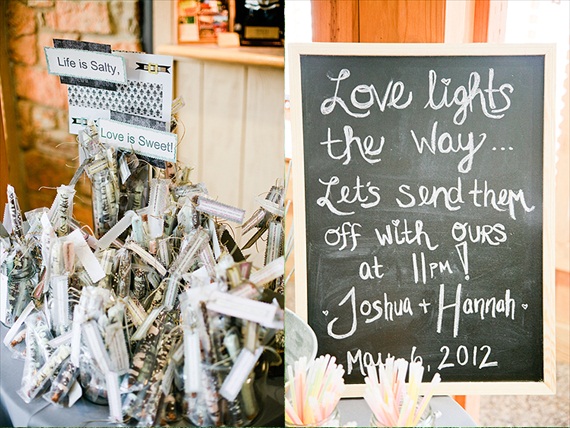 Life is Salty,
Love is Sweet!
Love lights
the way...
Let's send them
off with ours
at 11PM!
Joshua + Hannah
6, 2012